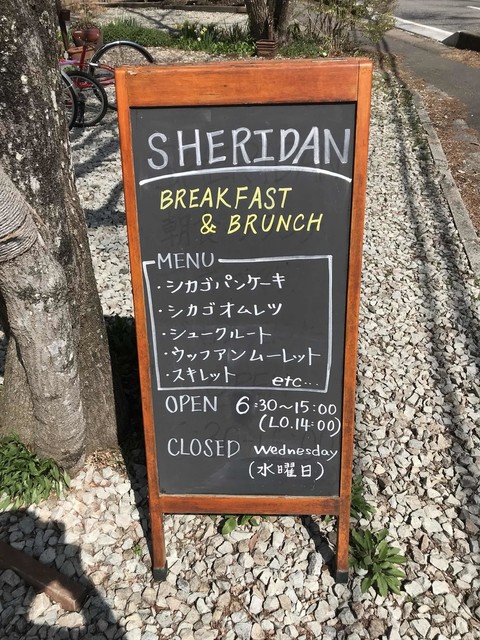 SHERIDAN
BREAKFAST
& BRUNCH
MENU
・シカゴパンケーキ
・シカゴオムレツ
・シュークルート
・ウッフアンムーレット
・スキレット etc...
OPEN 6:30〜15:00
(LO.14:00)
CLOSED Wednesday
(水曜日)